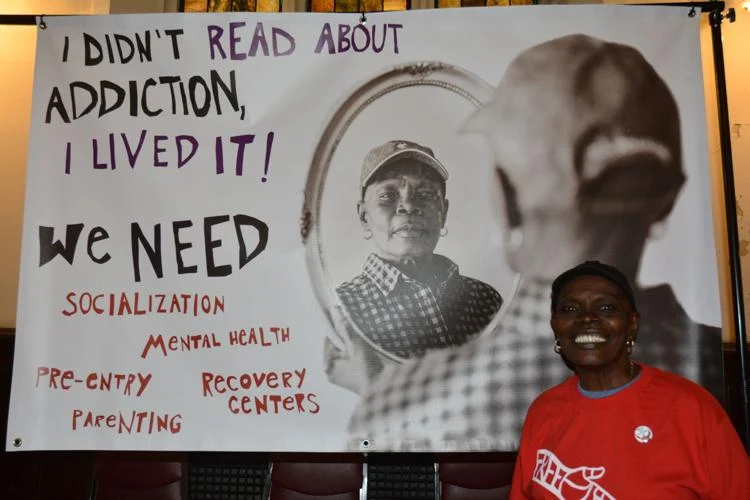 I DIDN'T READ ABOUT
ADDICTION,
I LIVED IT!
We NEED
SOCIALIZATION
MENTAL HEALTH
PRE-ENTRY
RECOVERY
CENTERS
PAReNTING
FREE